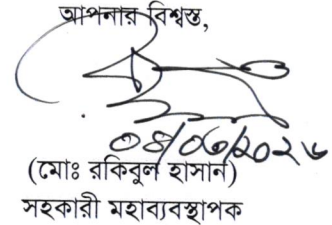 আপনার বিশ্বস্ত,
০৪/০৬/২০২৬
(মোঃ রকিবুল হাসান)
সহকারী মহাব্যবস্থাপক